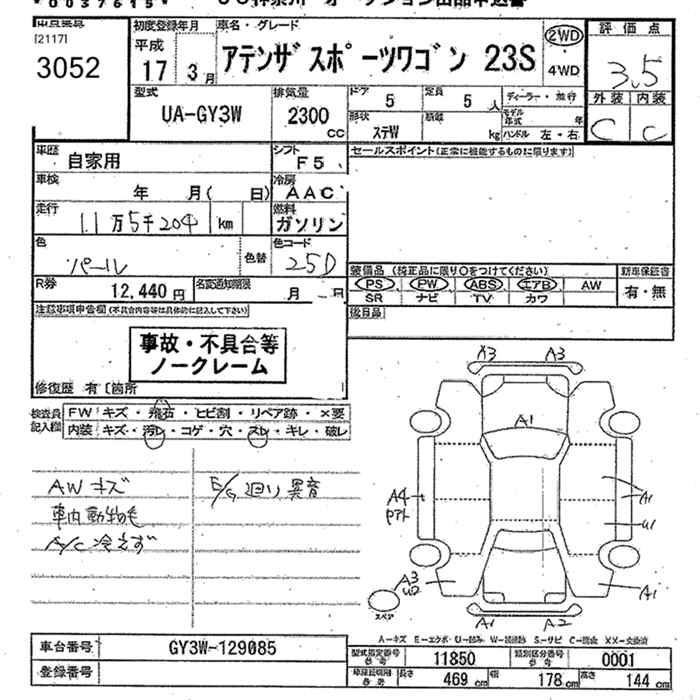 *0037615*
[2117]
3052
初度登録年月
平成
17年 3月
車名・グレード
アテンザスポーツワゴン 23S
2WD
・
4WD
評価点
3.5
外装 内装
C C
型式
UA-GY3W
排気量
2300
cc
ドア
5
定員
5 人
形状
ステW
積載
kg
ディーラー・並行
モデル年式 年
ハンドル 左・右
車歴
自家用
シフト
F5
セールスポイント(正常に機能するものに限ります)
車検
年 月( 日)
冷房
AAC
走行
11万5千204 km
燃料
ガソリン
色
パール
色替
色コード
25D
R券
12,440 円
名変通知期限
月 日
装備品 (純正品に限り○をつけてください)
PS PW ABS エアB AW
SR ナビ TV カワ
新車保証書
有・無
後日品
注意事項申告欄(不具合内容等は具体的に記入して下さい)
事故・不具合等
ノークレーム
修復歴 有〔箇所
検査員記入欄
FW キズ・飛石・ヒビ割・リペア跡・×要
内装 キズ・汚レ・コゲ・穴・スレ・キレ・破レ
AWキズ
車内動物毛
A/C冷えず
E/G廻り異音
X3 A3
A1
A4
A1
U1
A3
U2
A1
A1 A2
スペア
車台番号 GY3W-129085
登録番号
A-キズ E-エクボ U-凹み S-サビ XX-交換済
型式指定番号 参考 11850
類別区分番号 参考 0001
長さ 469 cm
幅 178 cm
高さ 144 cm